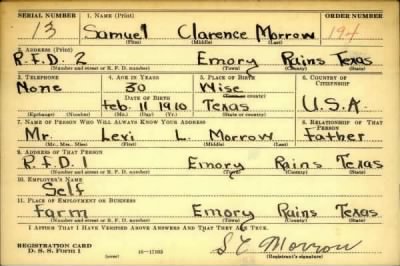 SERIAL NUMBER 1. NAME (Print) ORDER NUMBER
13 Samuel Clarence Morrow 194
(First) (Middle) (Last)
2. ADDRESS (Print)
R.F.D. 2 Emory Rains Texas
(Number and street or R. F. D. number) (Town) (County) (State)
3. TELEPHONE 4. AGE IN YEARS 5. PLACE OF BIRTH 6. COUNTRY OF CITIZENSHIP
None 30 Wise
DATE OF BIRTH (Town or county)
Feb. 11 1910 Texas U.S.A.
(Exchange) (Number) (Mo.) (Day) (Yr.) (State or country)
7. NAME OF PERSON WHO WILL ALWAYS KNOW YOUR ADDRESS 8. RELATIONSHIP OF THAT PERSON
Mr. Levi L. Morrow Father
(Mr., Mrs., Miss) (First) (Middle) (Last)
9. ADDRESS OF THAT PERSON
R.F.D. 1 Emory Rains Texas
(Number and street or R. F. D. number) (Town) (County) (State)
10. EMPLOYER'S NAME
Self
11. PLACE OF EMPLOYMENT OR BUSINESS
Farm Emory Rains Texas
(Number and street or R. F. D. number) (Town) (County) (State)
I AFFIRM THAT I HAVE VERIFIED ABOVE ANSWERS AND THAT THEY ARE TRUE.
REGISTRATION CARD
D. S. S. FORM 1 16—17105 S C Morrow
(Registrant's signature)